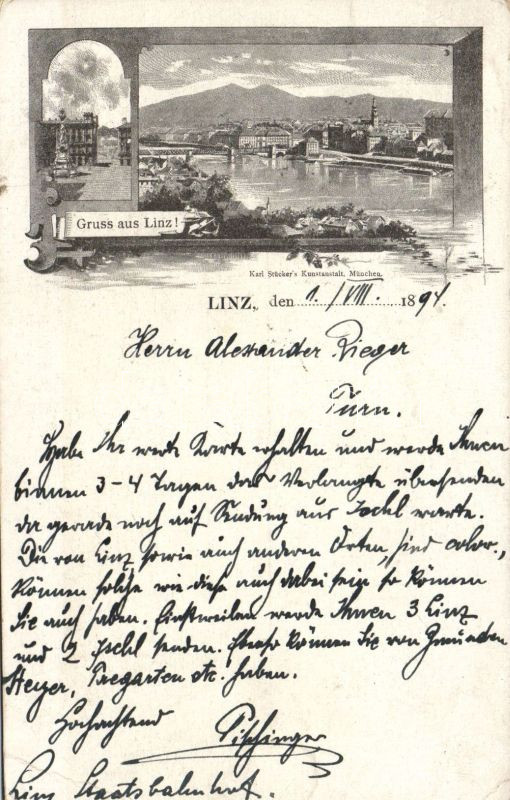 Gruss aus Linz!
Karl Stücker's Kunstanstalt, München.
LINZ, den 1./VIII. 1894.
Herrn Alexander Rieger
Turn.
Habe Ihr werte Karte erhalten und werde Ihnen
binnen 3-4 Tagen das Verlangte übersenden
da gerade noch auf Sendung aus Ischl warte.
Die von Linz, sowie auch anderen Orten, sind color.,
können solche wie diese auch dabei sein so können
Sie auch haben. Einstweilen werde Ihnen 3 Linz
und 2 Ischl senden. Ebenso können Sie von Gmunden
Steyer, Pregarten etc. haben.
Hochachtend
Pischinger
Linz Staatsbahnhof.